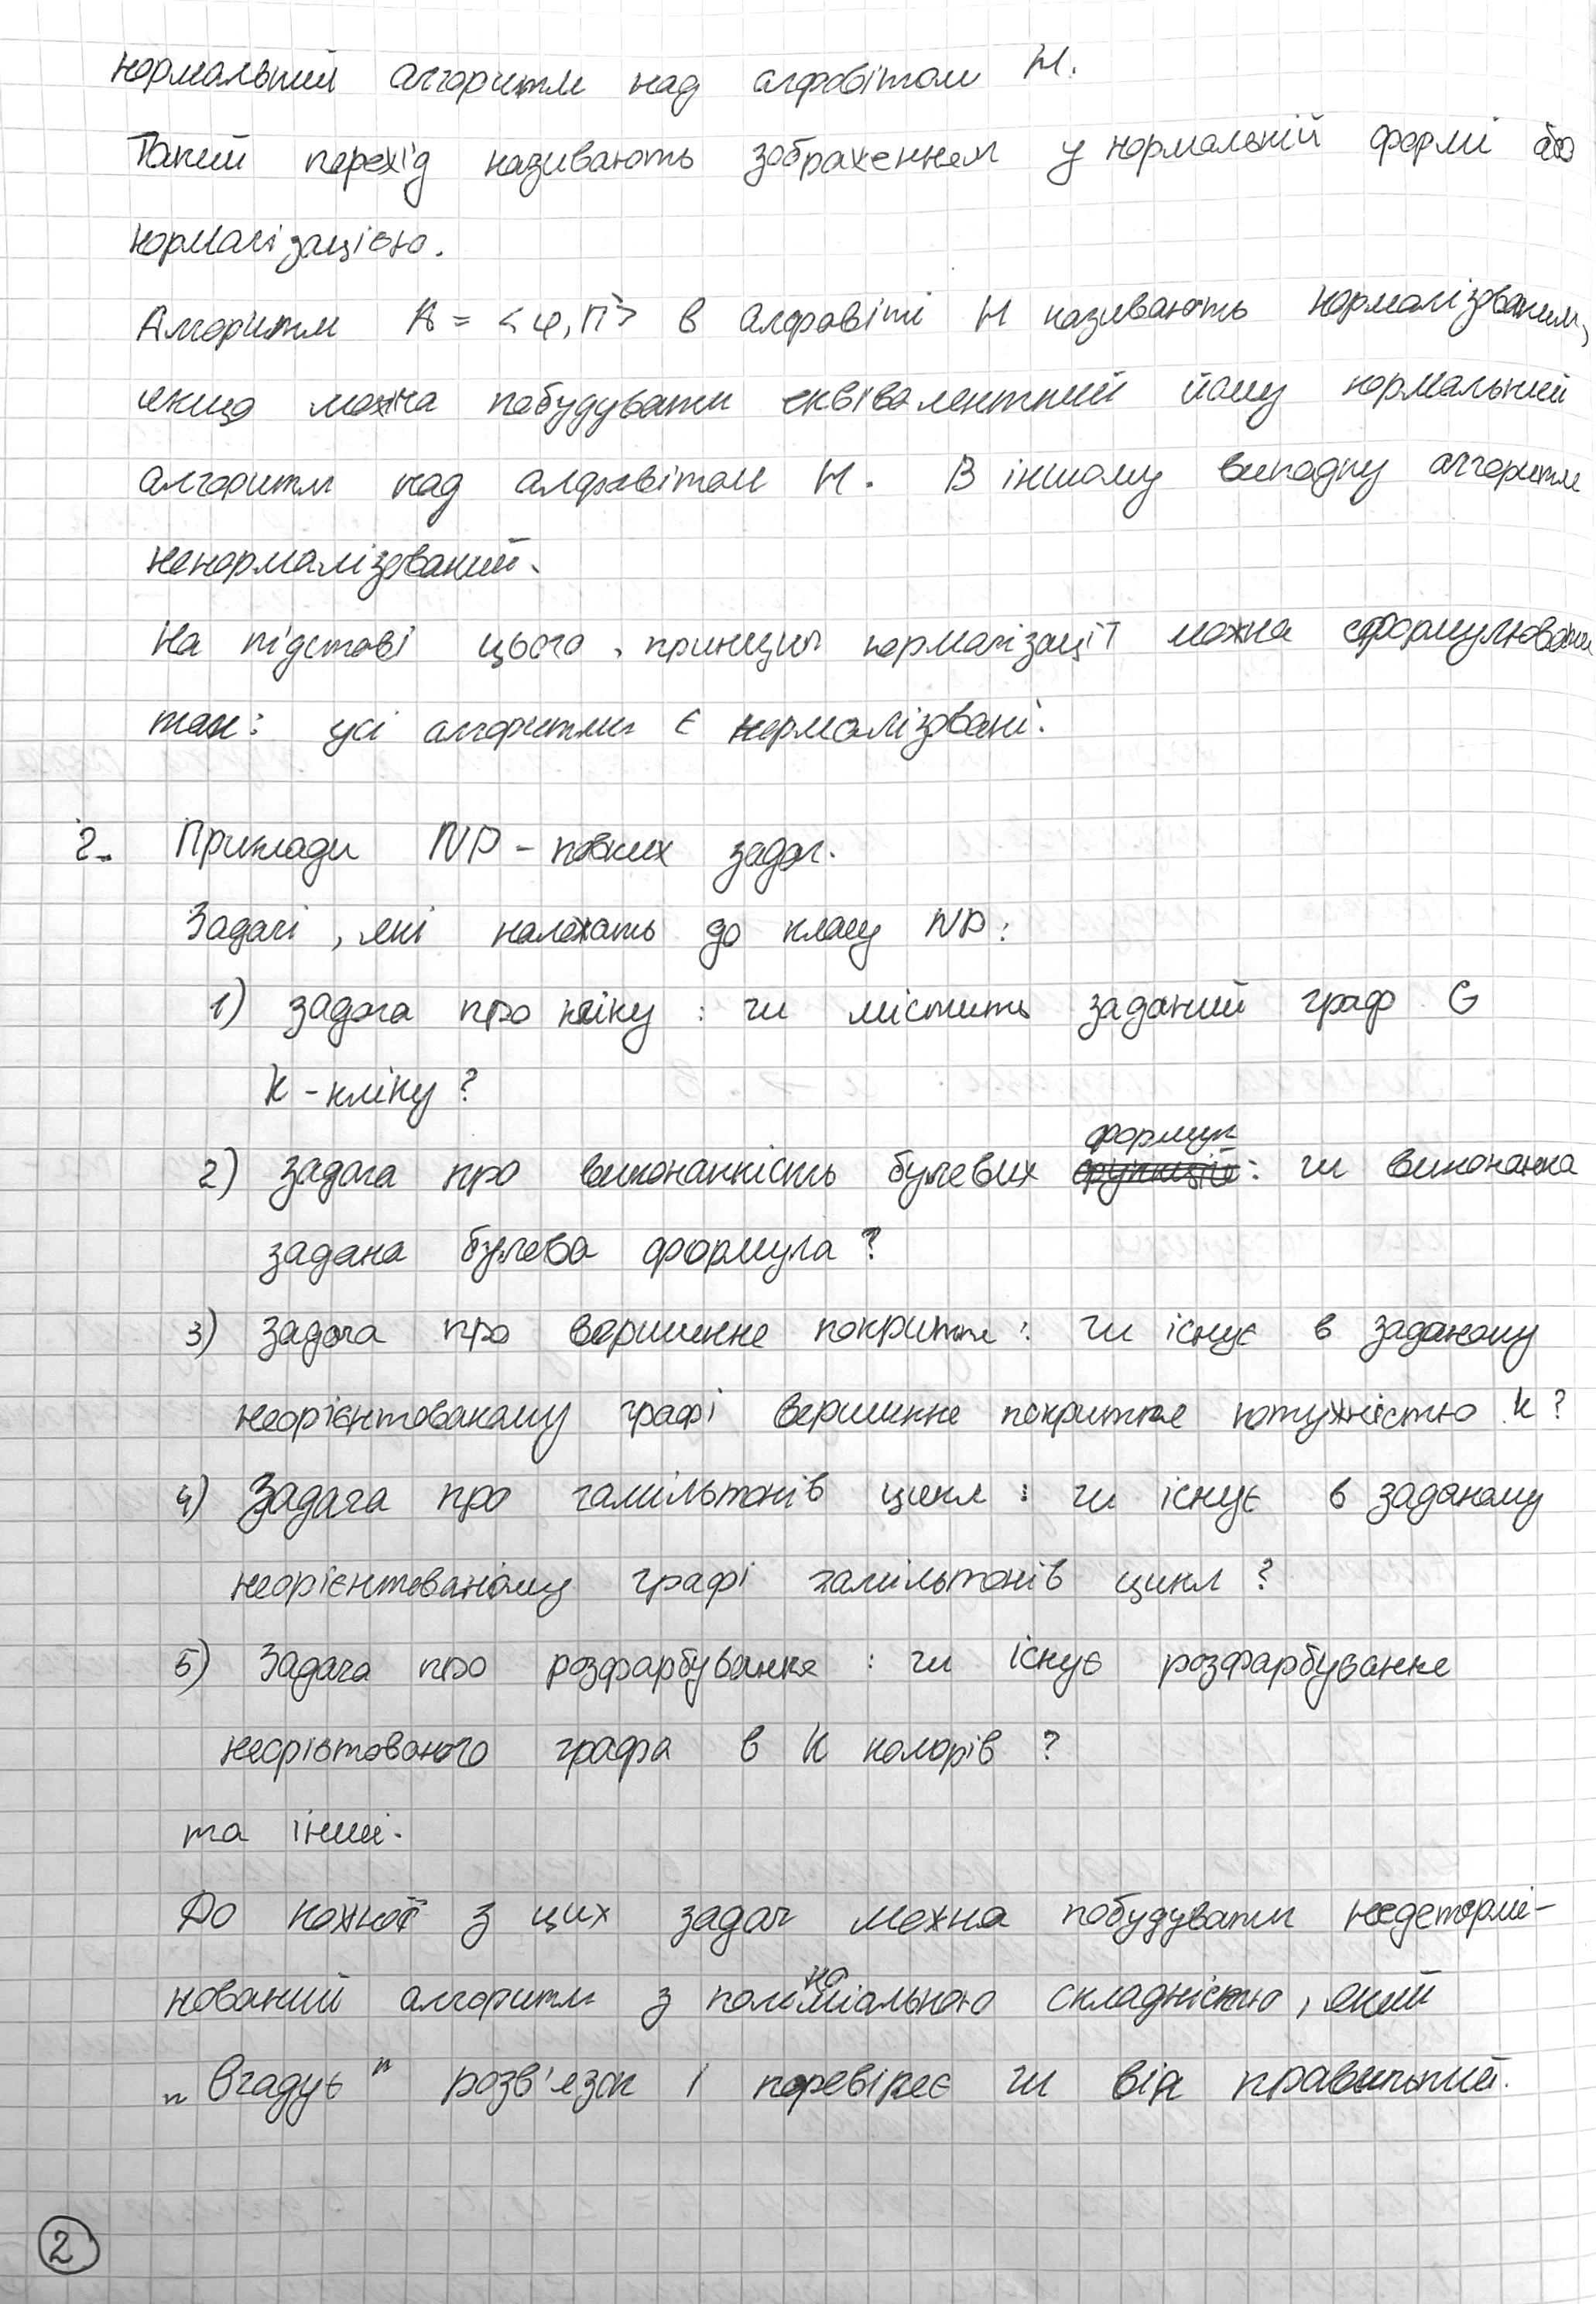 нормальний алгоритм над алфавітом Н.
Такий перехід називають зображенням у нормальній формі або
нормалізацією.
Алгоритм А = <φ, П> в алфавіті Н називають нормалізованим,
якщо можна побудувати еквівалентний йому нормальний
алгоритм над алфавітом Н. В іншому випадку алгоритм
ненормалізований.
На підставі цього, принцип нормалізації можна сформулювати
так: усі алгоритми є нормалізовані.
2. Приклади NP-повних задач.
Задачі, які належать до класу NP:
1) задача про кліку: чи містить заданий граф G
k-кліку?
2) задача про виконанність булевих формул: чи виконанна
задана булева формула?
3) задача про вершинне покриття: чи існує в заданому
неорієнтованому графі вершинне покриття потужністю k?
4) Задача про гамільтонів цикл: чи існує в заданому
неорієнтованому графі гамільтонів цикл?
5) Задача про розфарбування: чи існує розфарбування
неорієтованого графа в k колорів?
та інші.
До кожної з цих задач можна побудувати недетермі-
нований алгоритм з поліноміальною складністю, який
"вгадує" розв'язок і перевіряє чи він правильний.
2